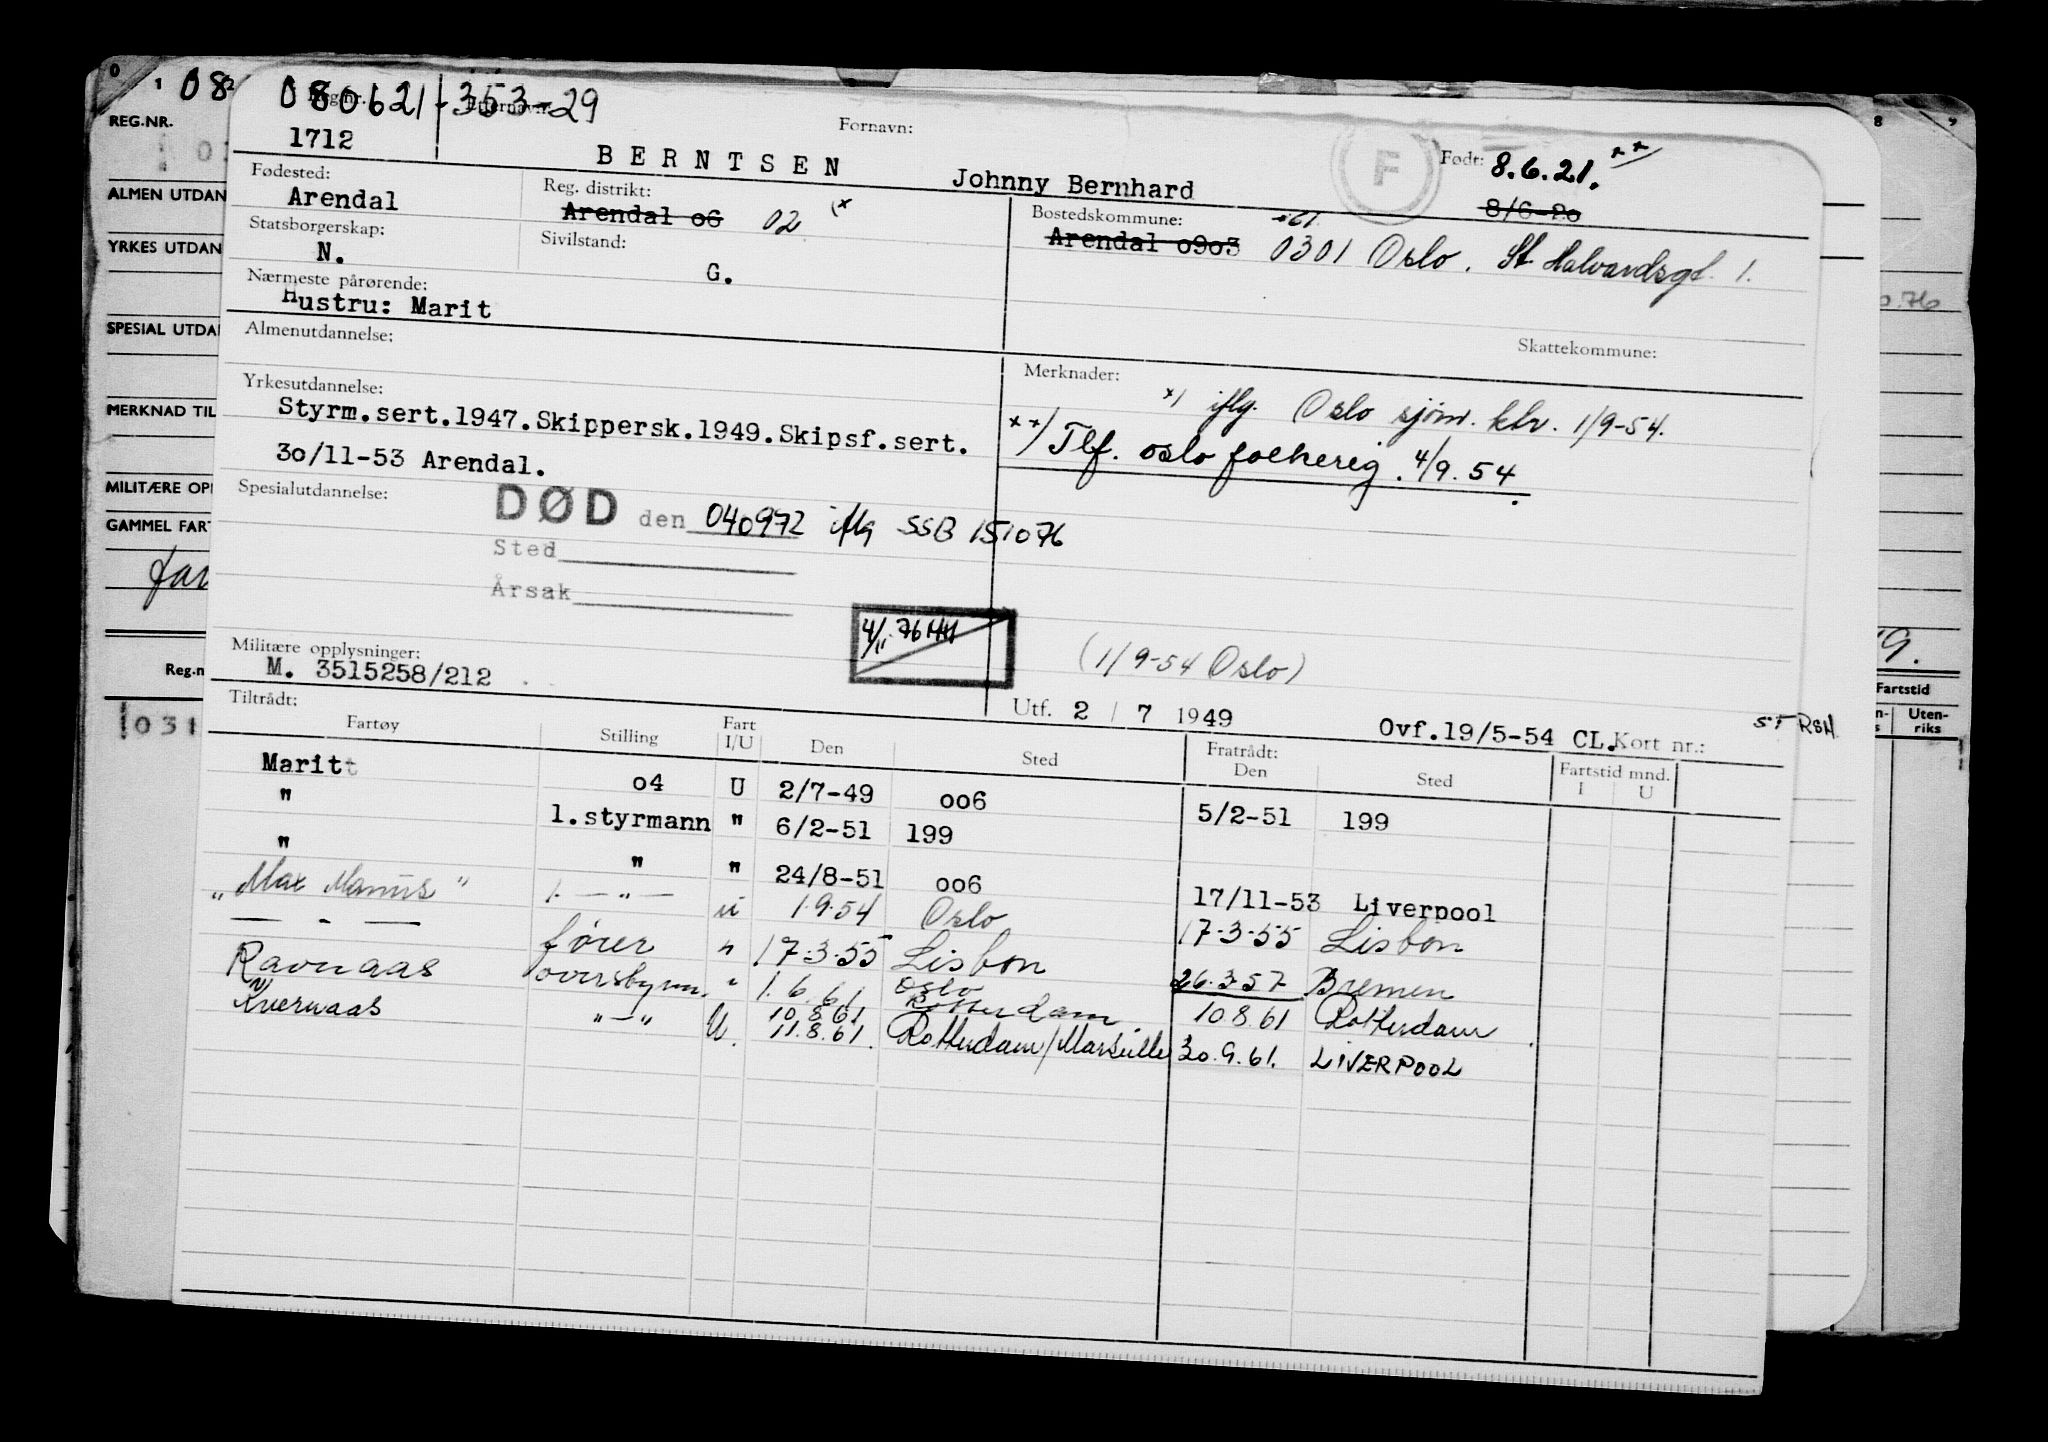 0 1 08 080621-353-29
REG.NR. Reg.nr. Etternavn: Fornavn: Født: 8.6.21. ** 8 9
1712 BERNTSEN Johnny Bernhard F 8/6-20
ALMEN UTDAN Fødested: Reg. distrikt: Bostedskommune:
Arendal Arendal o6 02 (x Arendal o9o3 0301 Oslo. St. Halvardsgt. 1.
YRKES UTDAN Statsborgerskap: Sivilstand:
N. G.
Nærmeste pårørende:
Hustru: Marit
SPESIAL UTDA Almenutdannelse: Skattekommune:
Yrkesutdannelse: Merknader:
MERKNAD TIL Styrm.sert.1947.Skippersk.1949.Skipsf.sert. x/ iflg. Oslo sjøm. ktr. 1/9-54.
30/11-53 Arendal. xx/ Tlf. oslo folkereg. 4/9.54
MILITÆRE OPP Spesialutdannelse:
GAMMEL FART DØD den 040972 iflg SSB 151076
Sted
Årsak
4/11 76 HH
Militære opplysninger: (1/9-54 Oslo)
Reg.n M. 3515258/212
Tiltrådt: Utf. 2 / 7 1949 Ovf.19/5-54 CL. Kort nr.: ST RSH
Fartstid
Uten-
riks
031
Fartøy Stilling Fart I/U Den Sted Fratrådt: Den Sted Fartstid mnd. I U
Maritt o4 U 2/7-49 oo6 5/2-51 199
" 1.styrmann " 6/2-51 199
" " " 24/8-51 oo6 17/11-53 Liverpool
"Max Manus" 1. — " — u 1.9.54 Oslo 17.3.55 Lisbon
— " — fører " 17.3.55 Lisbon 26.3.57 Bremen
Ravnaas overstyrm. " 1.6.61 Oslo 10.8.61 Rotterdam
10.8.61 Rotterdam
Kvernaas "—" U. 11.8.61. Rotterdam/Marseille 30.9.61. LIVERPOOL